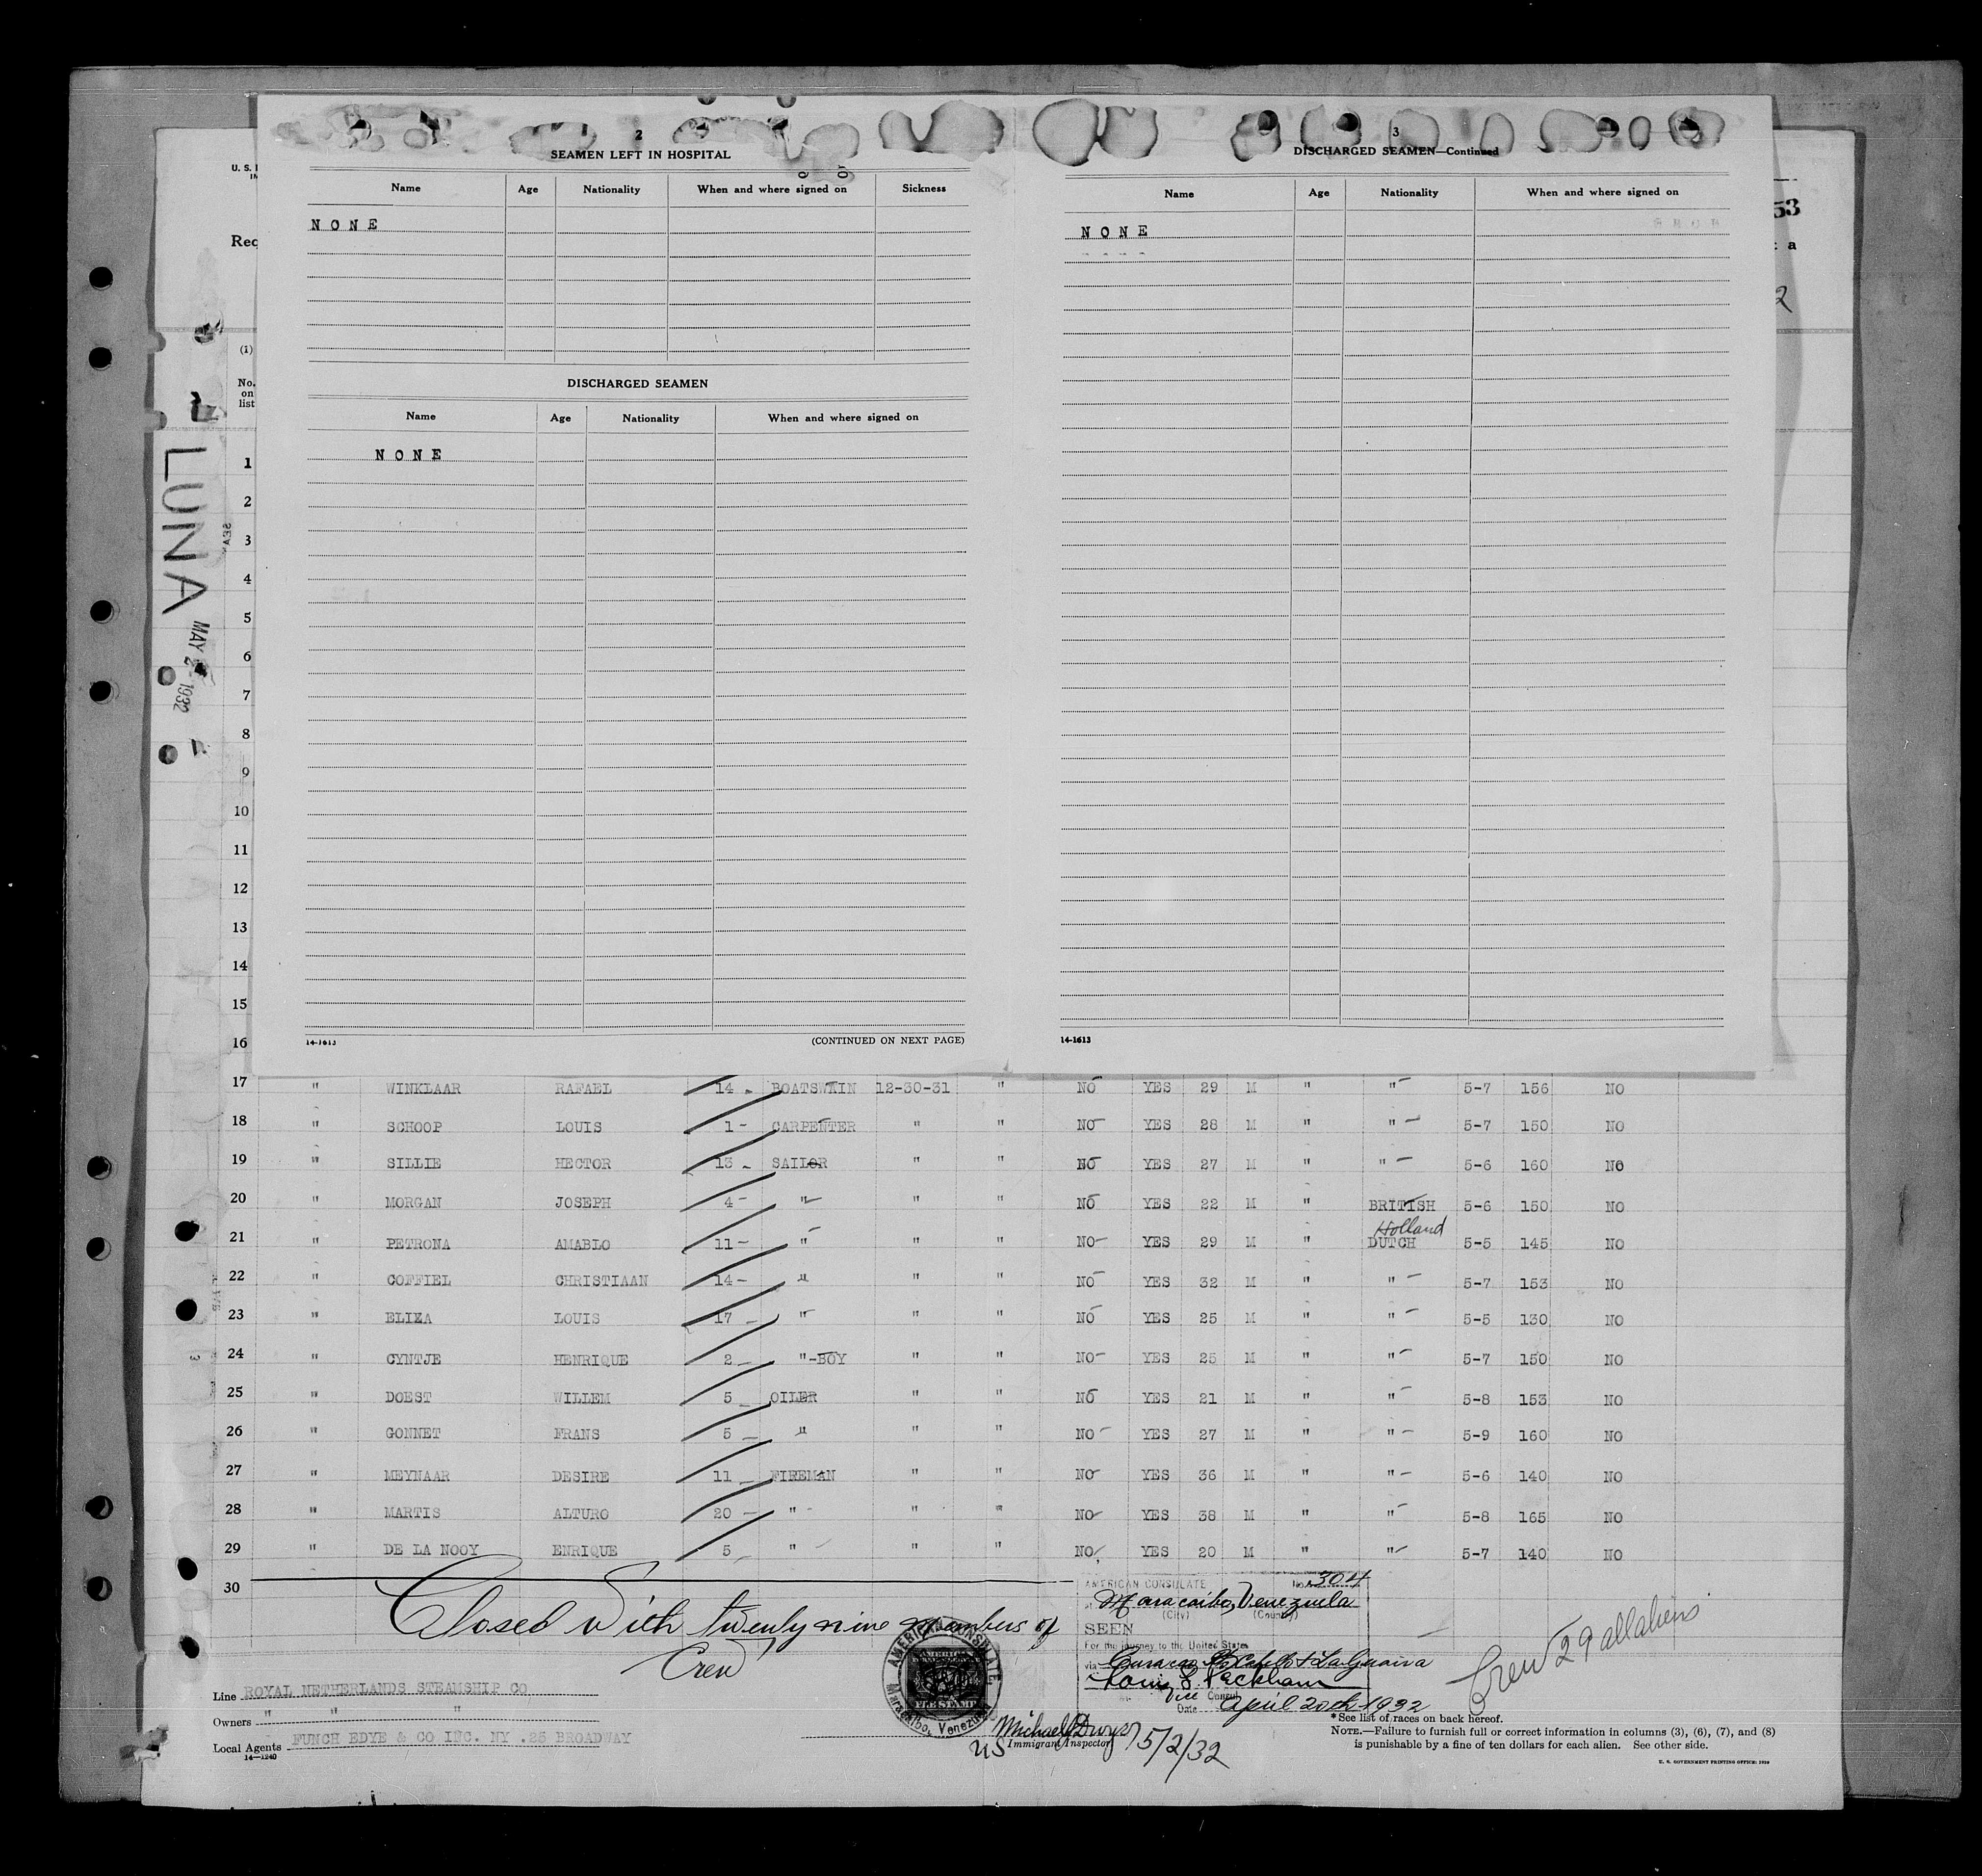 2
SEAMEN LEFT IN HOSPITAL
Name Age Nationality When and where signed on Sickness
NONE
DISCHARGED SEAMEN
Name Age Nationality When and where signed on
NONE
14-1613 (CONTINUED ON NEXT PAGE)
3
DISCHARGED SEAMEN—Continued
Name Age Nationality When and where signed on
NONE
14-1613
U. S.
Req
53
a
2
(1)
No. on list
LUNA
MAY 2 - 1932
1
2
3
4
5
6
7
8
9
10
11
12
13
14
15
16
17 " WINKLAAR RAFAEL 14 BOATSWAIN 12-30-31 " NO YES 29 M " " 5-7 156 NO
18 " SCHOOP LOUIS 1 CARPENTER " " NO YES 28 M " " 5-7 150 NO
19 " SILLIE HECTOR 13 SAILOR " " NO YES 27 M " " 5-6 160 NO
20 " MORGAN JOSEPH 4 " " " NO YES 22 M " BRITISH 5-6 150 NO
Holland
21 " PETRONA AMABLO 11 " " " NO YES 29 M " DUTCH 5-5 145 NO
22 " COFFIEL CHRISTIAAN 14 " " " NO YES 32 M " " 5-7 153 NO
23 " ELIZA LOUIS 17 " " " NO YES 25 M " " 5-5 130 NO
24 " CYNTJE HENRIQUE 2 "-BOY " " NO YES 25 M " " 5-7 150 NO
25 " DOEST WILLEM 5 OILER " " NO YES 21 M " " 5-8 153 NO
26 " GONNET FRANS 5 " " " NO YES 27 M " " 5-9 160 NO
27 " MEYNAAR DESIRE 11 FIREMAN " " NO YES 36 M " " 5-6 140 NO
28 " MARTIS ALTURO 20 " " " NO YES 38 M " " 5-8 165 NO
29 " DE LA NOOY ENRIQUE 5 " " " NO YES 20 M " " 5-7 140 NO
30
Closed with twenty nine members of
Crew
AMERICAN CONSULATE No. 304
Maracaibo, Venezuela
(City) (Country)
SEEN
For the journey to the United States
via Curacao Pto Cabello + La Guaira
Louis S. Packham
Vice Consul
Date April 20th 1932
AMERICAN CONSULATE
Maracaibo, Venezuela
FEE STAMP
Crew 29 all aliens
Line ROYAL NETHERLANDS STEAMSHIP CO
Owners " " "
Local Agents FUNCH EDYE & CO INC. NY .25 BROADWAY
14—1240
Michael J Dwyer 5/2/32
US Immigrant Inspector
* See list of races on back hereof.
NOTE.—Failure to furnish full or correct information in columns (3), (6), (7), and (8)
is punishable by a fine of ten dollars for each alien. See other side.
U. S. GOVERNMENT PRINTING OFFICE: 1930